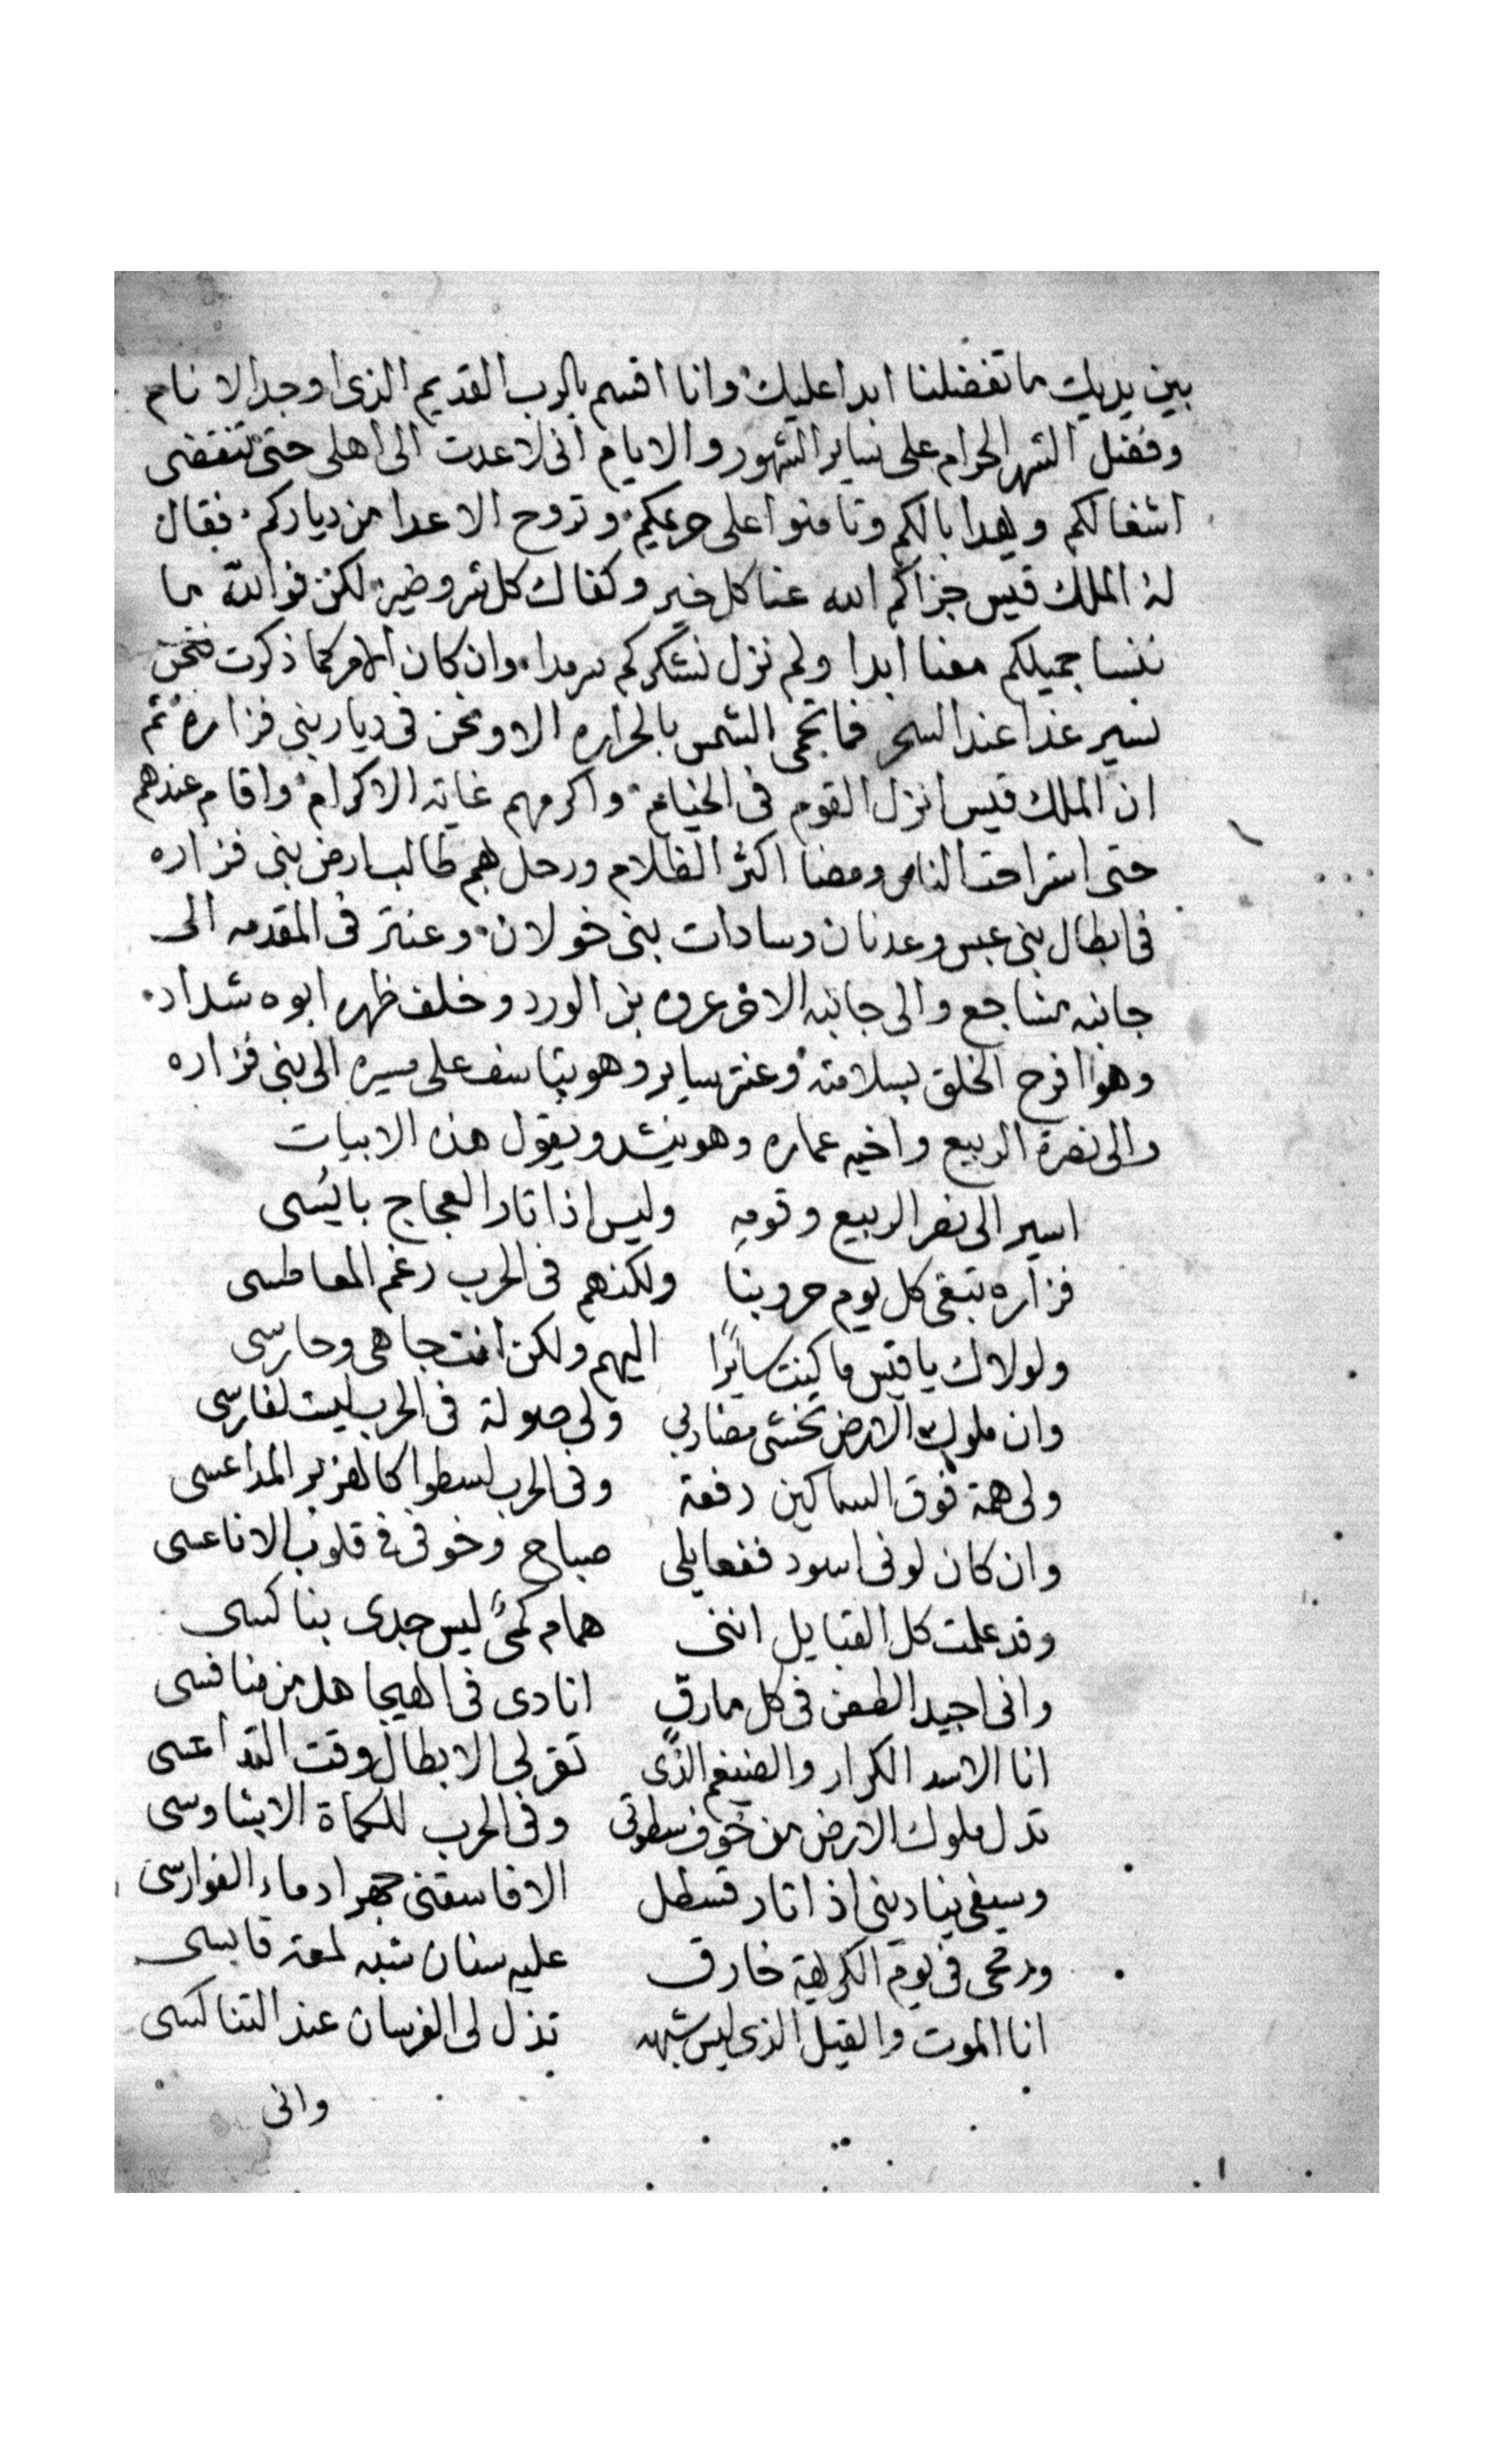 بين يديك ما تفضلنا ابدا عليك وانا اقسم بالرب القديم الذى اوجد الانام
وفضل الشهر الحرام على ساير الشهور والايام انى لا عدت الى اهلى حتى تنقضى
اشغالكم ويهدا بالكم وتامنوا على حريمكم وتروح الاعدا من دياركم فقال
له الملك قيس جزاكم الله عنا كل خير وكفاك كل شر وضير لكن فوالله ما
ننسا جميلكم معنا ابدا ولم نزل نشكركم سرمدا وان كان الامر كما ذكرت فنحن
نسير غدا عند السحر فما تحمى الشمس بالحراره الا ونحن فى ديار بنى فزاره ثم
ان الملك قيس انزل القوم فى الخيام واكرمهم غاية الاكرام واقام عندهم
حتى استراحت الناس ومضا اكثر الظلام ورحل بهم طالب ارض بنى فزاره
فى ابطال بنى عبس وعدنان وسادات بنى خولان وعنتر فى المقدمه الى
جانبه مشاجع والى جانبه الاخر عروه بن الورد وخلف ظهره ابوه شداد
وهو افرح الخلق بسلامته وعنتر ساير وهو يتاسف على مسيره الى بنى فزاره
والى نصرة الربيع واخيه عماره وهو ينشد ويقول هذه الابيات
اسير الى نصر الربيع وقومه وليس اذا ثار العجاج بايسى
فزاره تبقى كل يوم حروبنا ولكنهم فى الحرب رغم المعاطسى
ولولاك يا قيس ما كنت سايرا اليهم ولكن انت جاهى وحارسى
وان ملوك الارض تخشى مضاربى ولى صولة فى الحرب ليست لفارسى
ولى همة فوق السماكين رفعة وفى الحرب اسطوا كالهزبر المداعسى
وان كان لونى اسود ففعايلى صباح وخوفى فى قلوب الاناعسى
وقد علمت كل القبايل اننى همام كمىٌ ليس جدى بناكسى
وانى اجيد الطعن فى كل مارق انادى فى الهيجا هل من منافسى
انا الاسد الكرار والضيغم الذى تقر لى الابطال وقت التداعسى
تدل ملوك الارض من خوف سطوتى وفى الحرب للكماة الاشاوسى
وسيفى ينادينى اذ اثار قسطل الا فاسقنى جهرا دماء الفوارسى
ورمحى فى يوم الكريهة خارق عليه سنان شبه لمعة قابسى
انا الموت والقيل الذى ليس شبهه تذل لى الفرسان عند التناكسى
وانى